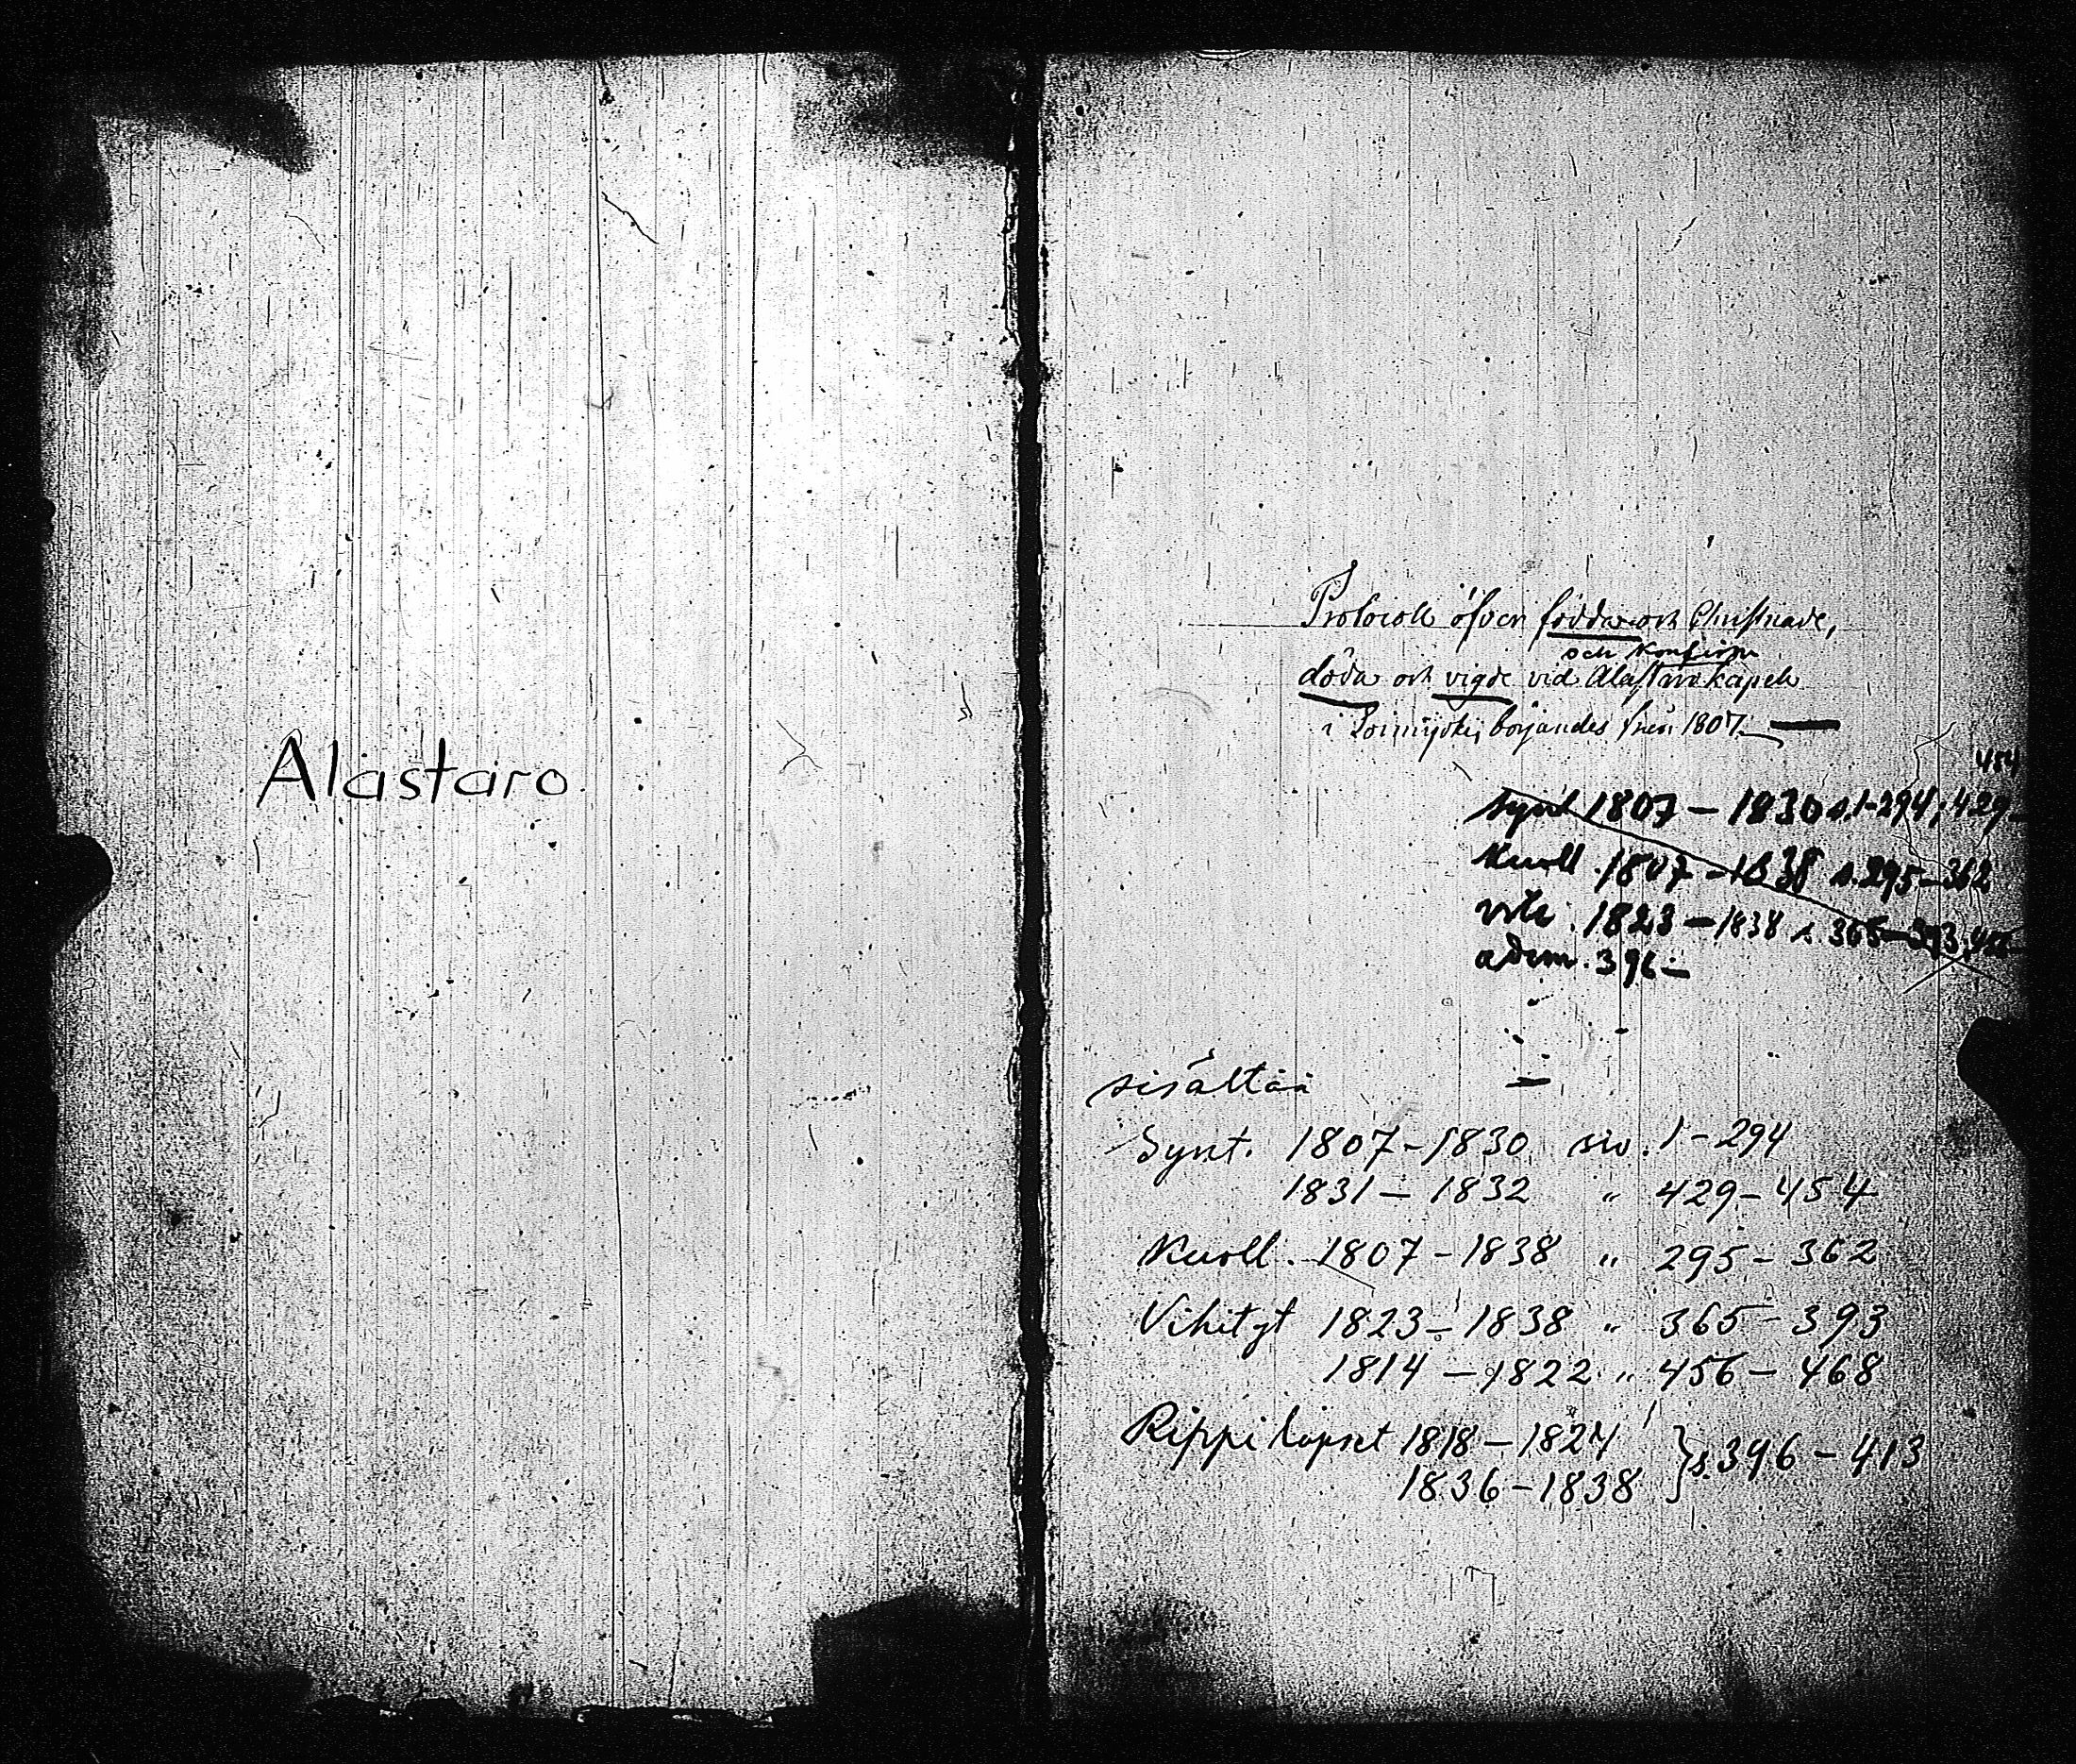 Alastaro
Protocoll öfver födda och Christnade,
och Konfirm
döda och vigde vid Alastaro kapell
i Loimijoki, börjandes från 1807.
454
synt 1807 - 1830 s. 1-294; 429-
kuoll. 1807 - 1838 s. 295-362
1823 - 1838 s. 365-393,
adm. 396-
sisältää
Synt. 1807-1830 siv. 1-294
1831 - 1832 " 429-454
Kuoll. 1807-1838 " 295-362
Vihityt 1823-1838 " 365-393
1814 - 1822 " 456-468
Rippilapset 1818-1824
1836-1838 } s. 396-413